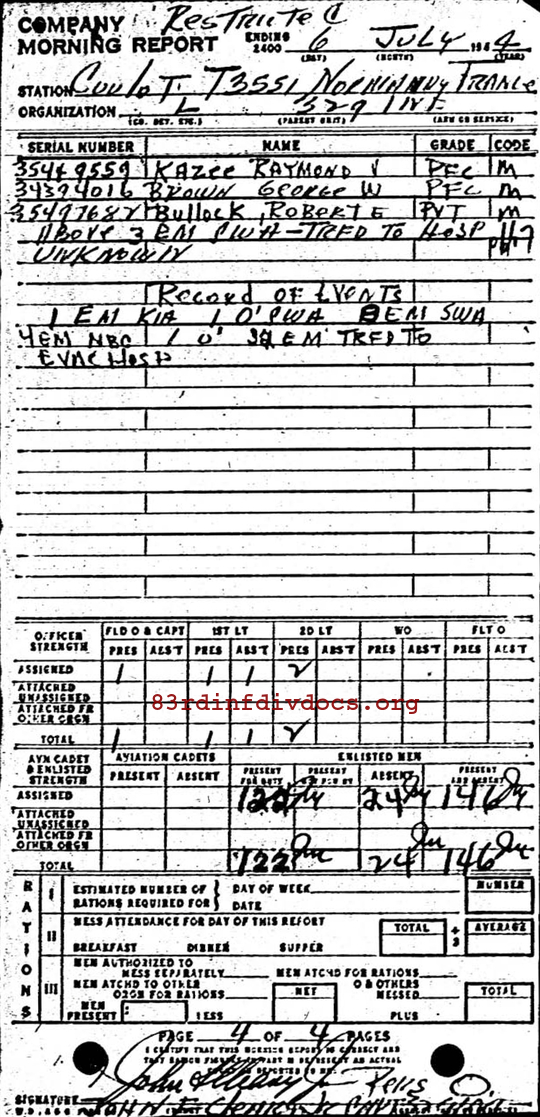 Restricted
COMPANY
MORNING REPORT ENDING 2400 6 JULY 1944
(DAY) (MONTH) (YEAR)
STATION T3551 FRANCE
ORGANIZATION L 329 INF
(CO. DET. ETC.) (PARENT UNIT) (ARM OR SERVICE)
SERIAL NUMBER NAME GRADE CODE
35449559 KAZEE RAYMOND V PFC M
34394016 BROWN GEORGE W PFC M
35497687 BULLOCK, ROBERT E PVT M
ABOVE 3 EM SWA-TRFD TO HOSP
UNKNOWN
RECORD OF EVENTS
1 EM KIA 1 O' SWA 8 EM SWA
4 EM NBC 1 O' EM TRFD TO
EVAC HOSP
OFFICER STRENGTH FLD O & CAPT 1ST LT 2D LT WO FLT O
PRES ABST PRES ABST PRES ABST PRES ABST PRES ABST
ASSIGNED 1 1 1 2
ATTACHED UNASSIGNED
83rdinfdivdocs.org
ATTACHED FR OTHER ORGN
TOTAL 1 1 1 2
AVN CADET & ENLISTED STRENGTH AVIATION CADETS ENLISTED MEN
PRESENT ABSENT PRESENT FOR DUTY PRESENT NOT FOR DY ABSENT PRESENT AND ABSENT
ASSIGNED 122 24 146
ATTACHED UNASSIGNED
ATTACHED FR OTHER ORGN
TOTAL 122 24 146
RATIONS
I ESTIMATED NUMBER OF RATIONS REQUIRED FOR } DAY OF WEEK NUMBER
DATE
II MESS ATTENDANCE FOR DAY OF THIS REPORT TOTAL ÷ 3 AVERAGE
BREAKFAST DINNER SUPPER
III MEN AUTHORIZED TO MESS SEPARATELY MEN ATCHD FOR RATIONS
MEN ATCHD TO OTHER ORGN FOR RATIONS NET O & OTHERS MESSED TOTAL
MEN PRESENT LESS PLUS
PAGE 4 OF 4 PAGES
I CERTIFY THAT THIS MORNING REPORT IS CORRECT AND
SIGNATURE